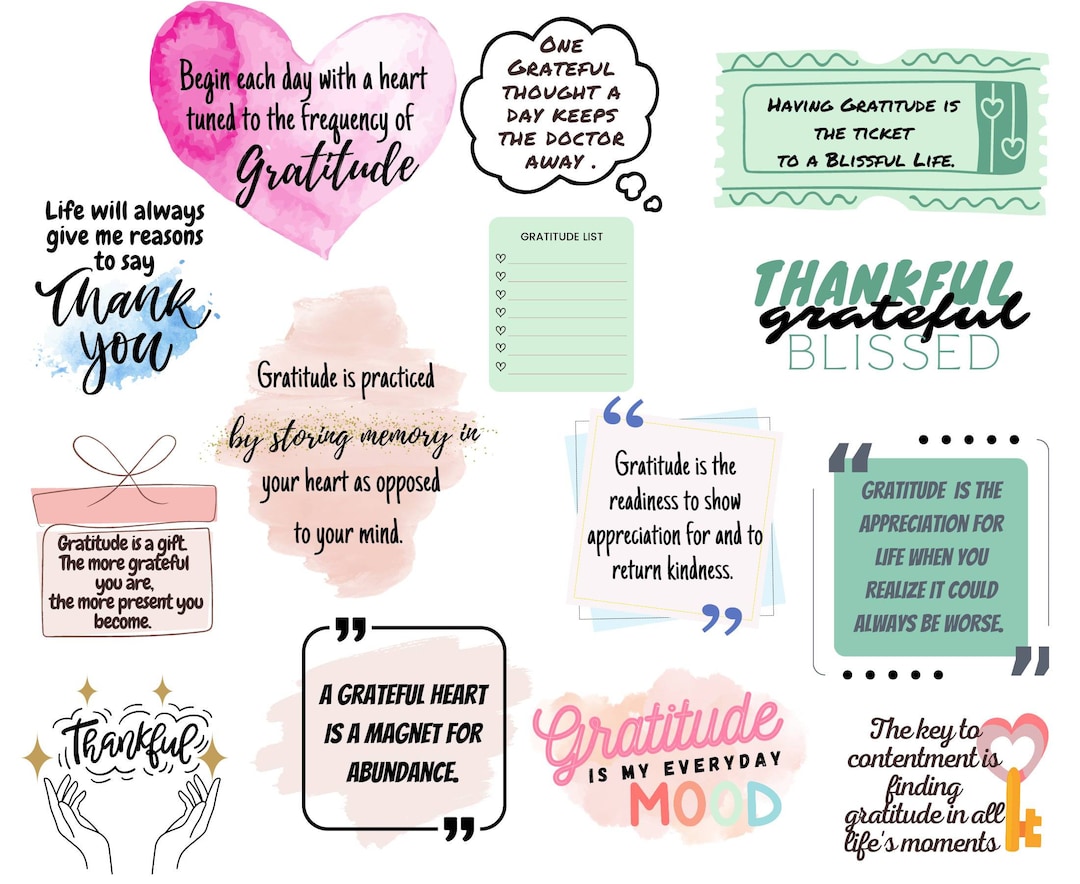 Begin each day with a heart
tuned to the frequency of
Gratitude
One
Grateful
thought a
day keeps
the doctor
away .
Having Gratitude is
the ticket
to a Blissful Life.
Life will always
give me reasons
to say
Thank
you
GRATITUDE LIST
THANKFUL
grateful
BLISSED
Gratitude is practiced
by storing memory in
your heart as opposed
to your mind.
“
Gratitude is the
readiness to show
appreciation for and to
return kindness.
”
"
GRATITUDE IS THE
APPRECIATION FOR
LIFE WHEN YOU
REALIZE IT COULD
ALWAYS BE WORSE.
"
Gratitude is a gift.
The more grateful
you are,
the more present you
become.
Thankful
"
A GRATEFUL HEART
IS A MAGNET FOR
ABUNDANCE.
"
Gratitude
IS MY EVERYDAY
MOOD
The key to
contentment is
finding
gratitude in all
life's moments